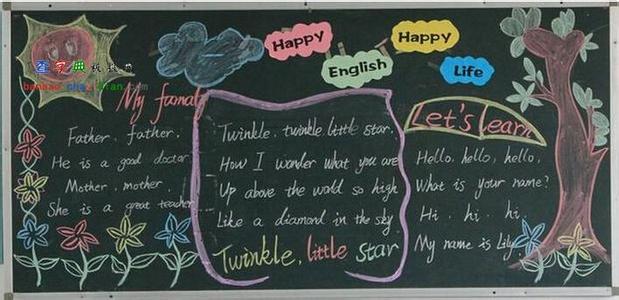 查字典
banbao.chazidian.com
Happy
English
Happy
Life
My famaly
Father, father,
He is a good doctor.
Mother, mother,
She is a great teacher
Twinkle, twinkle little star,
How I wonder what you are
Up above the world so high
Like a diamond in the sky.
Twinkle, little star
Let's learn
Hello, hello, hello,
What is your name?
Hi, hi, hi,
My name is Lily.